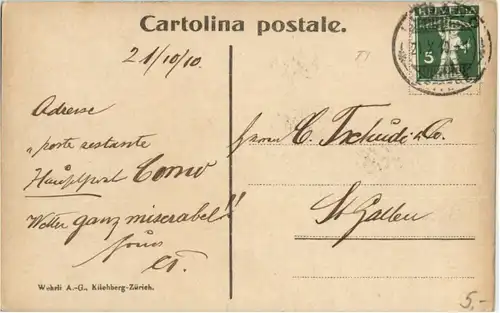 Cartolina postale.
21/10/10.
Adresse
"poste restante
Hauptpost Como
Wetter ganz miserabel!!
HELVETIA
5
Herrn C. Tschudi & Co.
St Gallen
Wehrli A.-G., Kilchberg-Zürich.
5.-